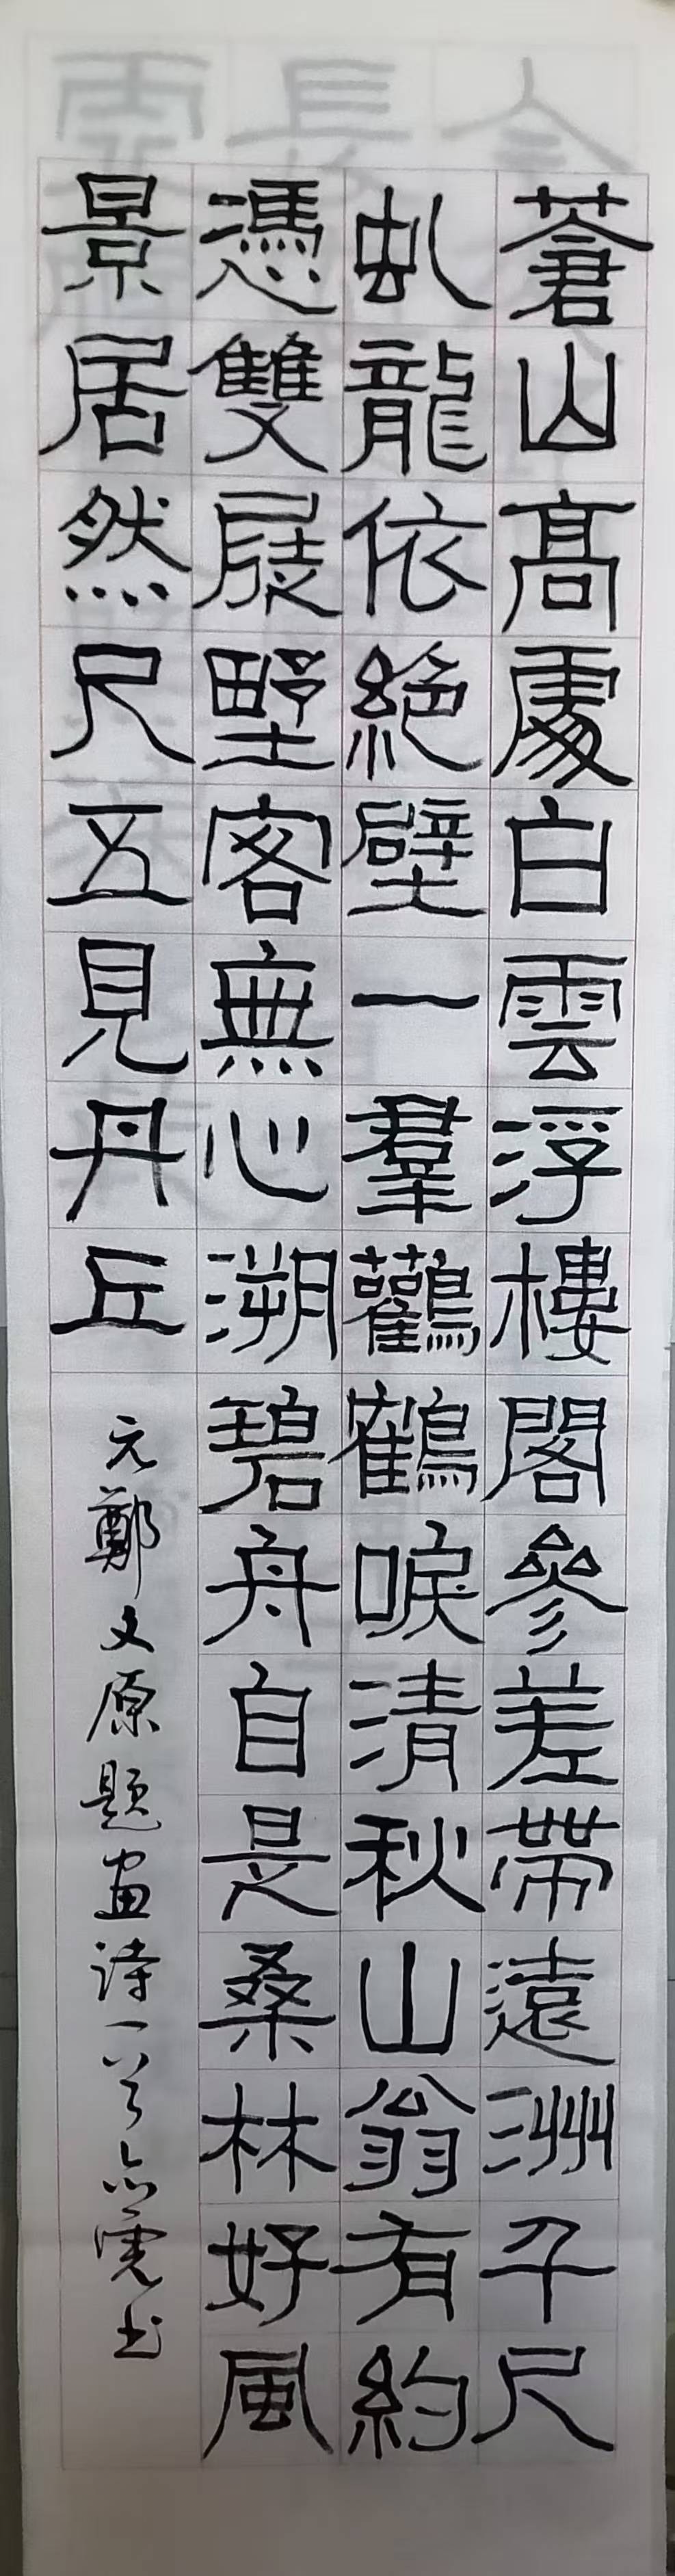 蒼山高處白雲浮樓閣參差帶遠洲千尺
虬龍依絕壁一羣鸛鶴唳清秋山翁有約
憑雙屐野客無心溯碧舟自是桑林好風
景居然尺五見丹丘
元鄭文原題畫詩一首